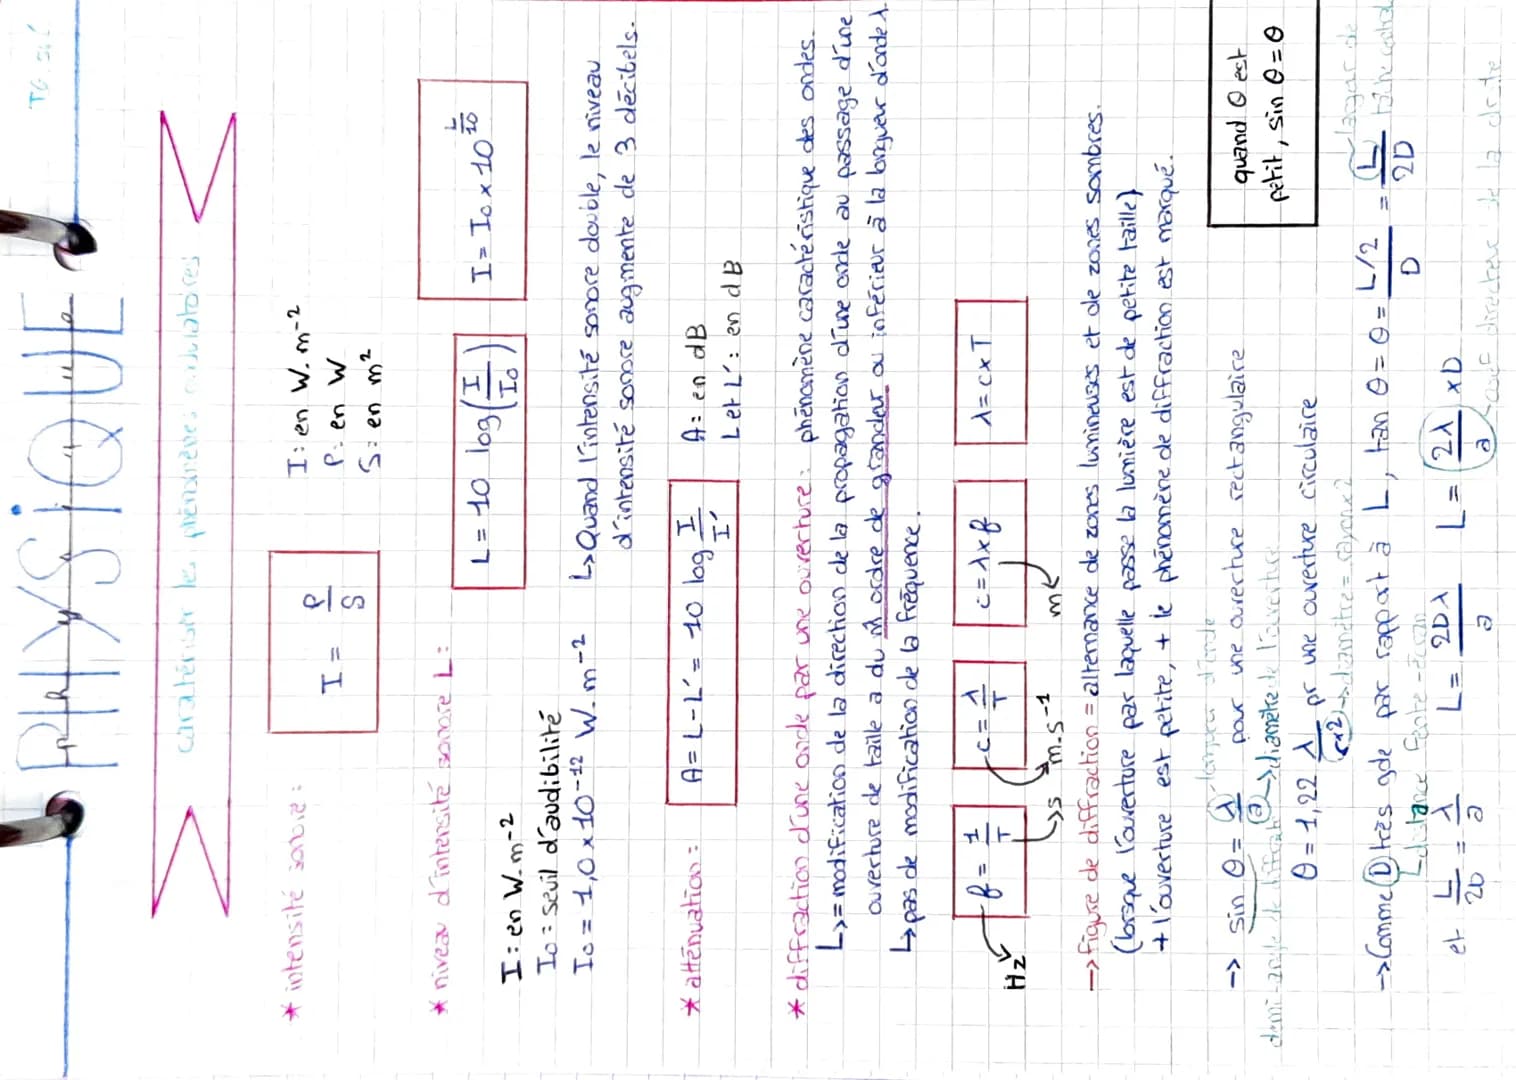 TG. SI
PHYSIQUE
Physique
caractériser les phénomènes ondulatoires
* intensité sonore :
I = P/S
I : en W.m⁻²
P : en W
S : en m²
* niveau d'intensité sonore L :
L = 10 log(I/I₀)
I = I₀ x 10^(L/10)
I : en W.m⁻²
I₀ : seuil d'audibilité
I₀ = 1,0 x 10⁻¹² W.m⁻²
↳ Quand l'intensité sonore double, le niveau
d'intensité sonore augmente de 3 décibels.
* atténuation :
A = L - L' = 10 log I/I'
A : en dB
L et L' : en dB
* diffraction d'une onde par une ouverture : phénomène caractéristique des ondes.
↳ = modification de la direction de la propagation d'une onde au passage d'une
ouverture de taille a du ordre de grandeur ou inférieur à la longueur d'onde λ.
↳ pas de modification de la fréquence.
f = 1/T
c = λ/T
c = λ x f
λ = c x T
Hz
s
m.s⁻¹
m
→ figure de diffraction = alternance de zones lumineuses et de zones sombres.
(lorsque l'ouverture par laquelle passe la lumière est de petite taille)
+ l'ouverture est petite, + le phénomène de diffraction est marqué.
longueur d'onde
→ sin θ = λ/a pour une ouverture rectangulaire
demi-angle de diffraction → diamètre de l'ouverture
quand θ est
petit, sin θ = θ
θ = 1,22 λ/(rx2) pr une ouverture circulaire
→ diamètre = rayon x 2
largeur de
tâche centrale
→ Comme D très gde par rapport à L, tan θ = θ = (L/2)/D = L/2D
distance fente-écran
et L/2D = λ/a
L = 2Dλ/a
L = 2λ/a x D
coef directeur de la droite